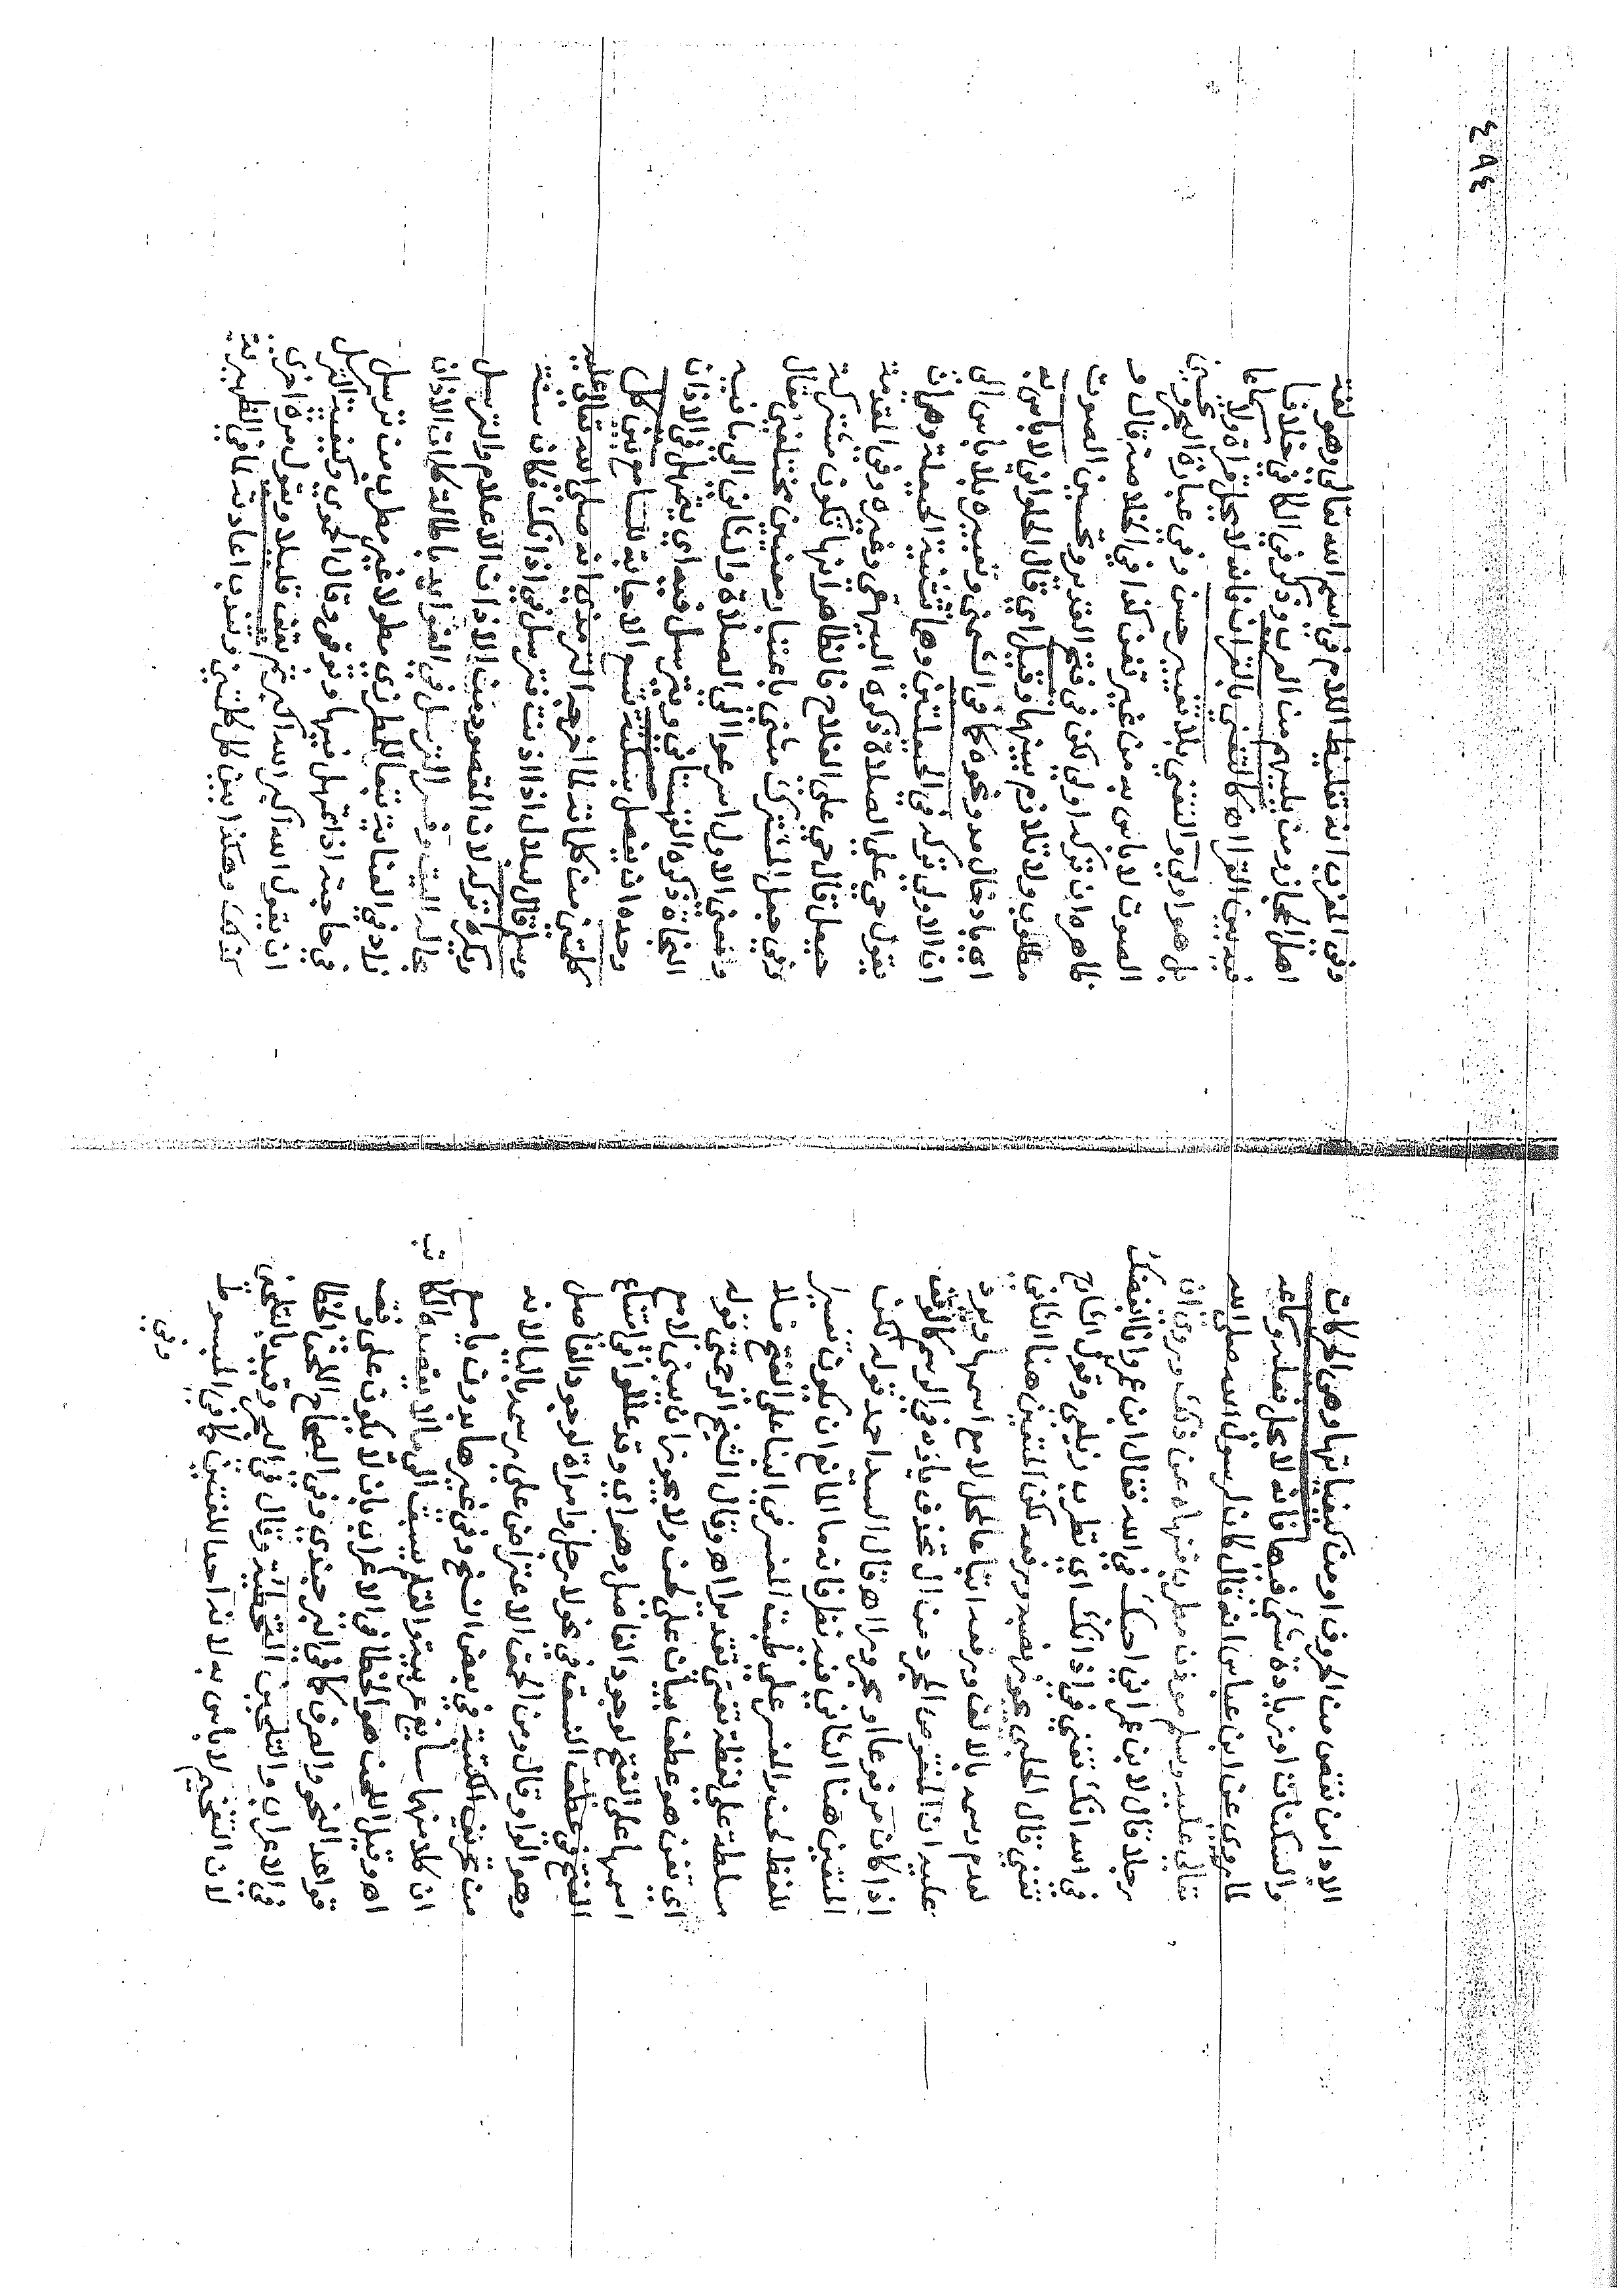 ٤٩٤
الاداء من نقص من الحروف او من كيفياتها وهي الحركات
والسكنات او زيادة شيء فيها فانه لا يحل فعله وسماعه
لما روي عن ابن عباس انه قال كان لرسول الله صلى الله
تعالى عليه وسلم مؤذن مطرب فنهاه عن ذلك وروي ان
رجلا قال لابن عمر اني احبك في الله فقال ابن عمر وانا ابغضك
في الله انك تغني في اذانك اي تطرب زيلعي وقول الشارح
تغني قال الحلبي يجوز نصبه ورفعه لكن المتعين هنا الثاني
لعدم رسمه بالالف ورفعه اتباعا لمحل لا مع اسمها ويرد
عليه ان المنقوص المجرد من ال تحذف ياؤه في الرسم كالوقف
اذا كان مرفوعا او مجرورا اه قال السيد احمد قوله لكن
المتعين هنا الثاني فيه نظر فانه ما المانع ان يكون تفسيرا
للفظ لحن والمفسر على طبق المفسر في البنا على الفتح فلا
سلطة على لفظة تغني اه وقال الشيخ الرحمتي قوله
اي تغن هو عطف بيان على لحن ولا يجوز ان يبنى لامع
اسمها على الفتح لوجود الفاصل وهو اي وقد عللوا امتناع
الفتح في عطف النسق في نحو لا رجل وامراة لوجود الفاصل
وهو الواو قال ومن الاعتراض على رسمه بالياء لانه
من تحريف الكتبة في بعض النسخ وفي غيرها بدون ياء مع
ان كلا منهما سايغ عربية والقلم يسبق الى ما لا يقصده الكاتب
اه وقيل اللحن هو الخطا في الاعراب بان لا يكون على وفق
قواعد النحو والصرف كما في البرجندي وفي الصحاح اللحن الخطا
في الاعراب والتلحين التخطية وقال في البحر وقيد بالتلحين
لان التفخيم لا باس به لانه احد اللغتين كما في المبسوط
وفي
وفي المغرب انه تغليظ اللام في اسم الله تعالى وهو لغة
اهل الحجاز ومن يليهم من العرب وذكر في الكافي خلافا
فيه بين القراء اه كالتغني بالقران فانه لا يحل قراءة ولا سماعا
بل هو اولى والتغني بلا تغيير حسن وفي عبارة البحر وتحسين
الصوت لا باس به من غير تغن كذا في الخلاصة قال و
ظاهره ان تركه اولى لكن في فتح القدير وتحسين الصوت
مطلوب ولا تلازم بينهما وقيل اي قال الحلواني لا باس به
اي بادخال مد ونحوه كما في الشمني وتعبيره بلا باس الى
ان الاولى تركه في الحيعلتين وهما تثنية الحيعلة وهي ان
يقول حي على الصلاة ذكره وغيره وفي المقدمة
حيعل قال حي على الفلاح فالظاهر انها تكون مشتركة
وفي حمل المشترك مثنى باعتبار معنيين مختلفين مقال
ومعنى الاول اسرعوا الى الصلاة والثاني الى ما فيه
النجاة ذكره القهستاني ويترسل فيه اي يتمهل في الاذان
وحده ان يفصل بسكتة تسع الاجابة للسامع بين كل
كلمتين من كلماته لما اخرجه الترمذي انه صلى الله تعالى عليه
وسلم قال لبلال اذا اذنت فترسل في اذانك فكان سنة
ويكره تركه لان المقصود من الاذان الاعلام والترسل
بحاله اليق وفسر الترسل في الفوايد باطالة كلمات الاذان
زاد في العناية تبعا للمطرزي يطولا غير مطرب من ترسل
في حاجته اذا تمهل فيها وتوقف وقال الحموي وكيفية الترسل
ان يقول الله اكبر الله اكبر ثم يقف قليلا ويقول مرة اخرى
كذلك وهكذا بين كل كلمتين وتندب اعادته كما في الظهيرية